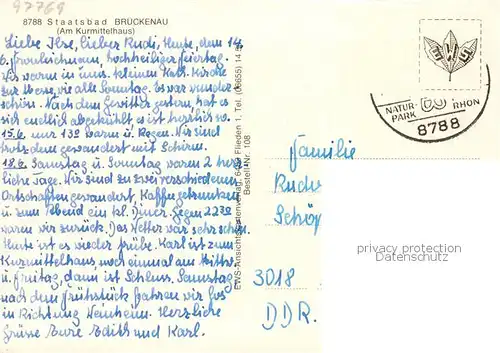 97769
8788 Staatsbad BRÜCKENAU
(Am Kurmittelhaus)
Liebe Ilse, lieber Rudi, Heute, dem 14.
6. Fronleichnam, hochheiliger Feiertag.
Wir waren in uns. kleinen Kath. Kirche
zur Messe, wie alle Sonntag. Es war wunder
schön. Nach dem Gewitter gestern, hat es
sich endlich abgekühlt es ist herrlich so.
15.6. nur 13° warm u. Regen. Wir sind
trotzdem gewandert mit Schirm.
18.6. Samstag u. Sonntag waren 2 herr
liche Tage. Wir sind zu zwei verschiedenen
Ortschaften gewandert, Kaffeegetrunken
u. zum Abend ein kl. Diner. Gegen 22³⁰
waren wir zurück. Das Wetter war sehr schön.
Heute ist es wieder trübe. Karl ist zum
Kurmittelhaus, noch einmal am Mittw.
u. Freitag, dann ist Schluss. Samstag
nach dem Frühstück fahren wir los
in Richtung Weinheim. Herzliche
Grüsse Eure Edith und Karl.
EWS-Ansichtskartenverlag, 6404 Flieden 1, Tel. (06655) 14
Bestell-Nr. 108
NATUR-
PARK
RHÖN
8788
Familie
Rudi
Schö
3018
DDR.
privacy protection